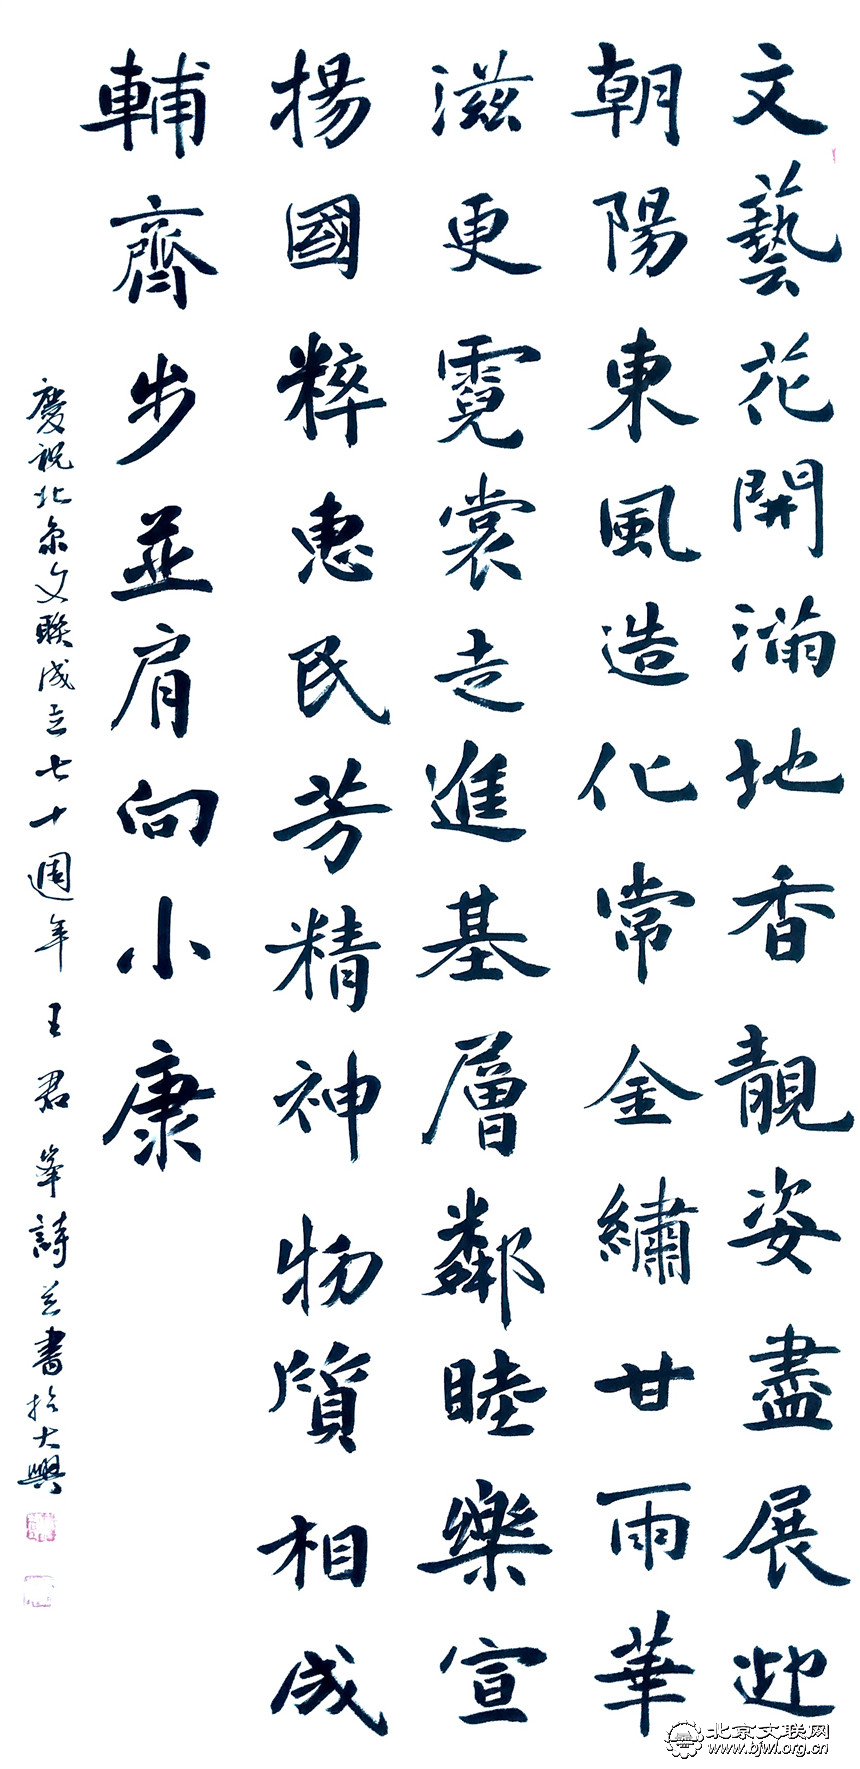 文藝花開滿地香靚姿盡展迎
朝陽東風造化常金繡甘雨華
滋更霓裳走進基層鄰睦樂宣
揚國粹惠民芳精神物質相成
輔齊步並肩向小康
慶祝北京文联成立七十週年王君峯詩並書於大興
北京文联网
www.bjwl.org.cn